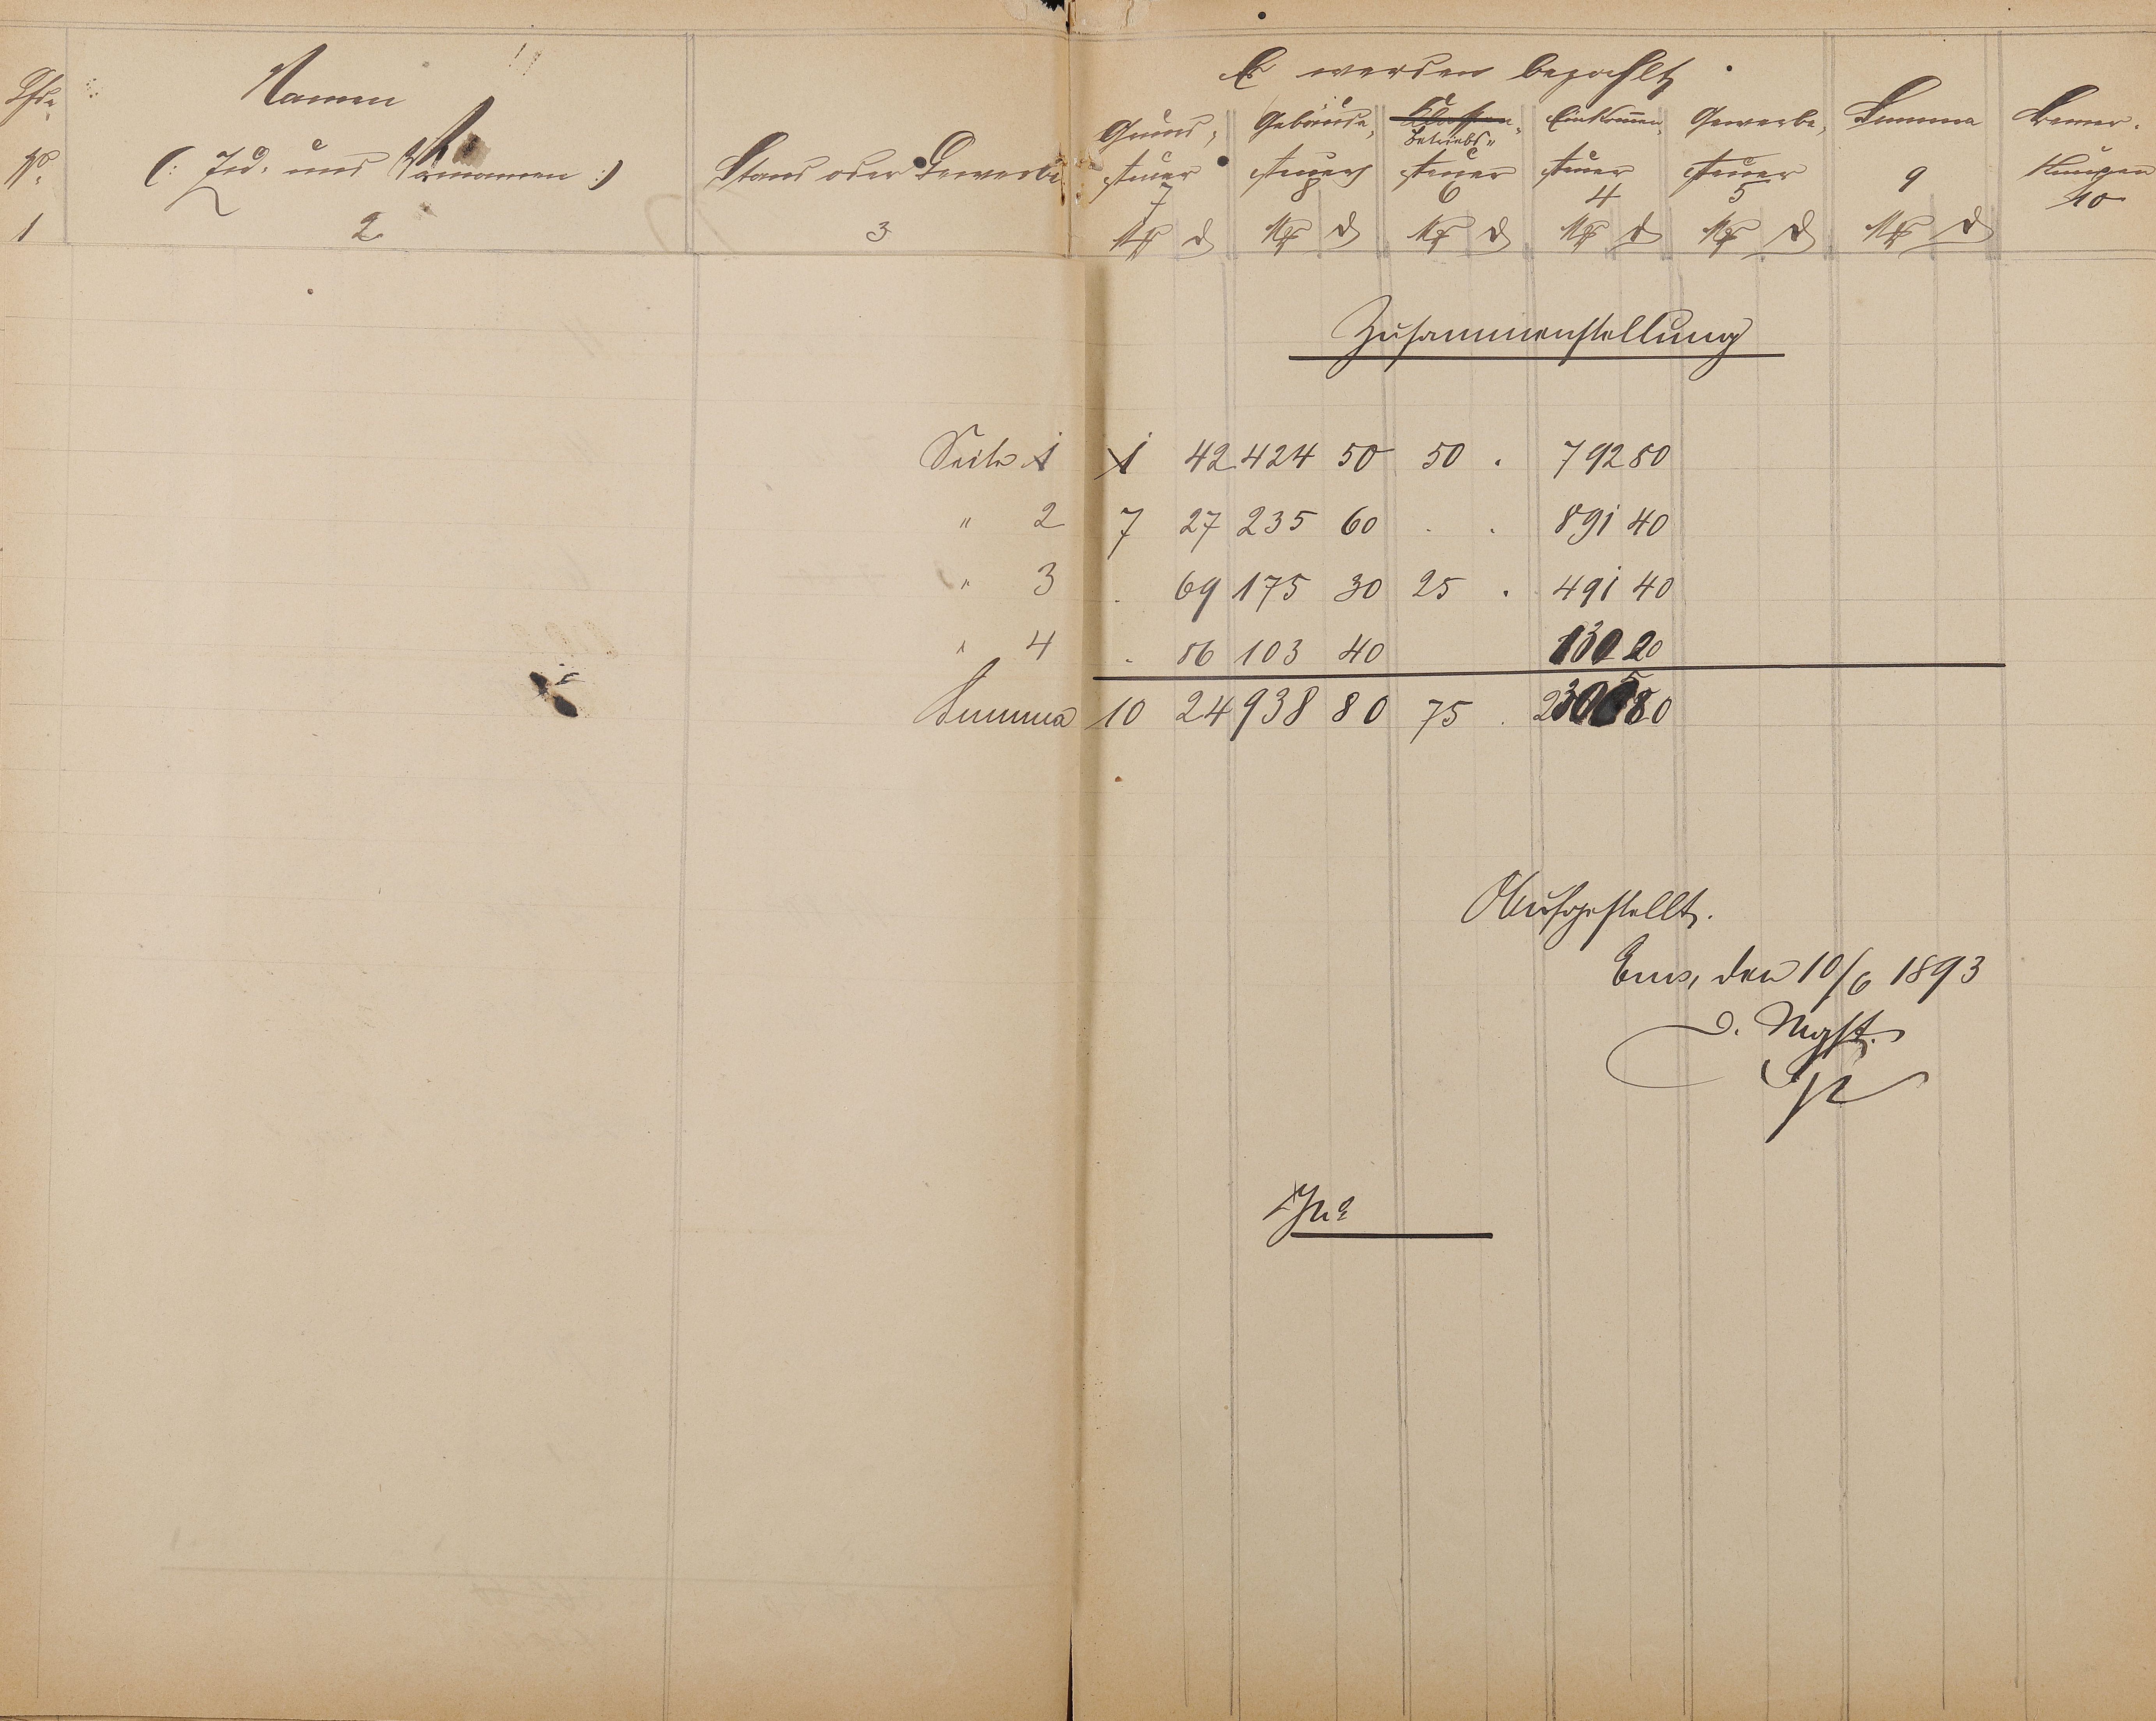 Es werden bezahlt
Lfde Namen Grund- Gebäude- Klassen- Einkommen- Gewerbe- Summa Bemer-
Betriebs-
No. (: Zu- und Vornamen :) Stand oder Gewerbe steuer steuer steuer steuer steuer 9 kungen
7 8 6 4 5 10
1 2 3 M d M d M d M d M d M d
Zusammenstellung
Seite 1 1 42 424 50 50 . 792 80
" 2 7 27 235 60 . . 891 40
" 3 . 69 175 30 25 . 491 40
" 4 . 86 103 40 130 20
Summa 10 24 938 80 75 . 2305 80
Aufgestellt.
Ems, den 10/6 1893
D. Mgst.